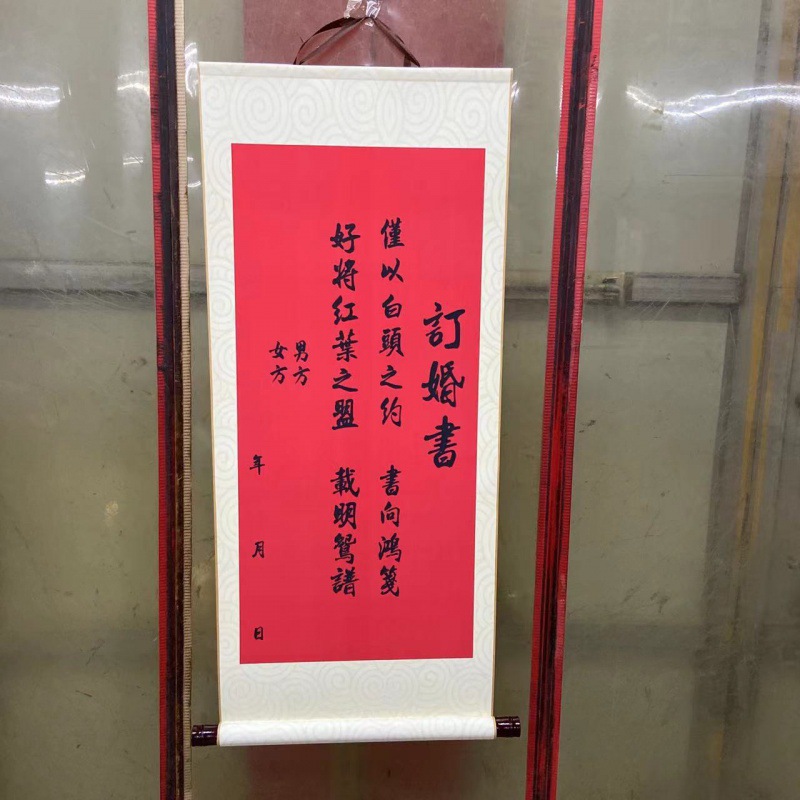 訂婚書
僅以白頭之約 書向鴻箋
好将红葉之盟 載明鴛譜
男方
女方
年 月 日